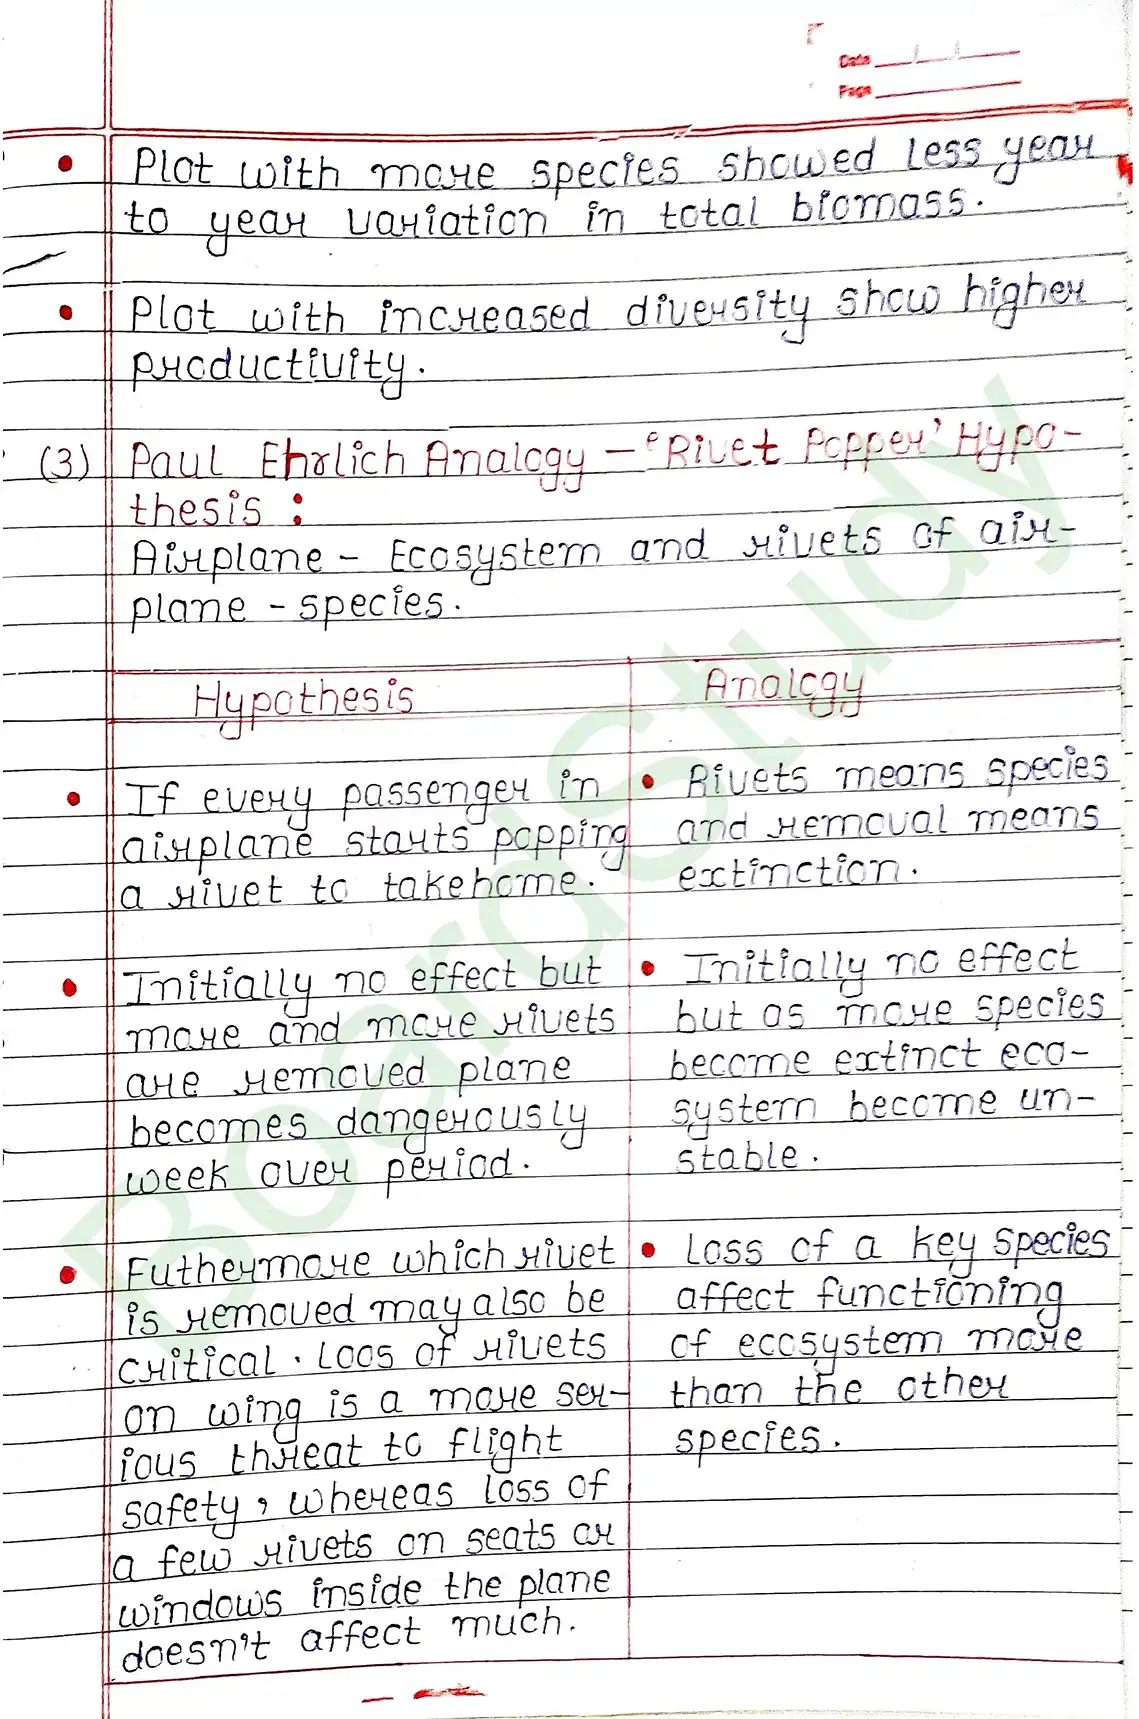 Date
Page
• Plot with more species showed less year
to year variation in total biomass.
• Plot with increased diversity show higher
productivity.
(3) Paul Ehrlich Analogy – 'Rivet Popper' Hypo-
thesis :
Airplane – Ecosystem and rivets of air-
plane – species.
Hypothesis
• If every passenger in
airplane starts popping
a rivet to takehome.
• Initially no effect but
more and more rivets
are removed plane
becomes dangerously
week over period.
• Futhermore which rivet
is removed may also be
critical. Loos of rivets
on wing is a more ser-
ious threat to flight
safety, whereas loss of
a few rivets on seats or
windows inside the plane
doesn't affect much.
Analogy
• Rivets means species
and removal means
extinction.
• Initially no effect
but as more species
become extinct eco-
system become un-
stable.
• Loss of a key species
affect functioning
of ecosystem more
than the other
species.
BoardStudy